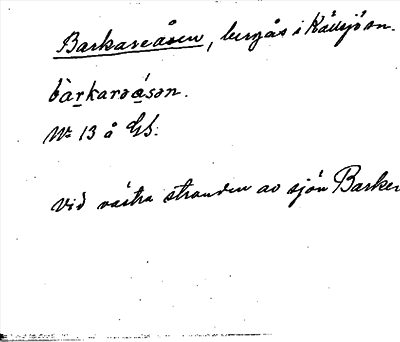 Barkareåsen, bergås i Rådsjö sn.
bàrkarəåsən.
No 13 å GS.
Vid västra stranden av sjön Barken